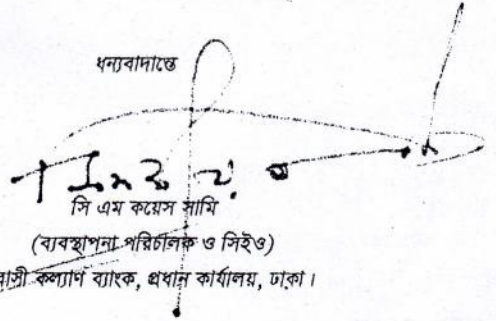 ধন্যবাদান্তে
সি এম কয়েস সামি
(ব্যবস্থাপনা পরিচালক ও সিইও)
বাসী কল্যাণ ব্যাংক, প্রধান কার্যালয়, ঢাকা।